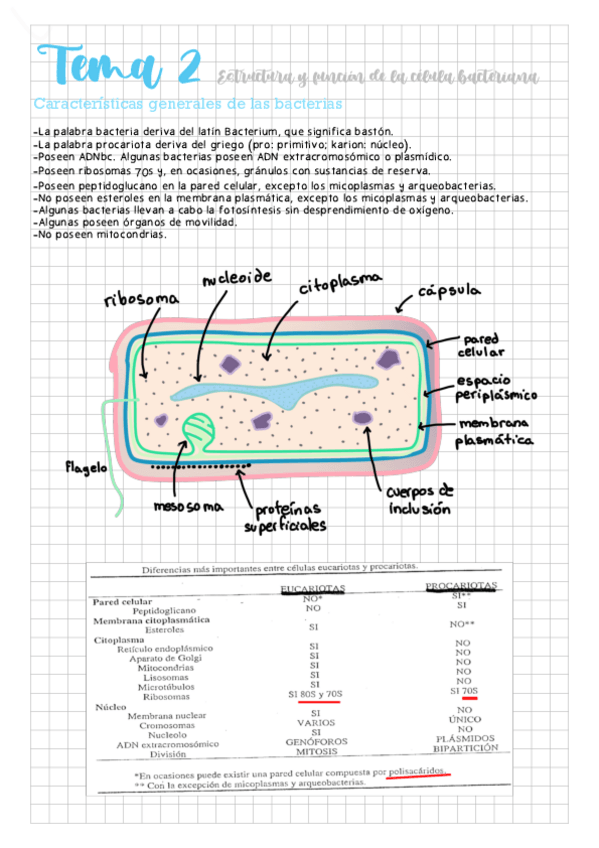 Tema 2 Estructura y función de la célula bacteriana
Características generales de las bacterias
-La palabra bacteria deriva del latín Bacterium, que significa bastón.
-La palabra procariota deriva del griego (pro: primitivo; karion: núcleo).
-Poseen ADNbc. Algunas bacterias poseen ADN extracromosómico o plasmídico.
-Poseen ribosomas 70s y, en ocasiones, gránulos con sustancias de reserva.
-Poseen peptidoglucano en la pared celular, excepto los micoplasmas y arqueobacterias.
-No poseen esteroles en la membrana plasmática, excepto los micoplasmas y arqueobacterias.
-Algunas bacterias llevan a cabo la fotosíntesis sin desprendimiento de oxígeno.
-Algunas poseen órganos de movilidad.
-No poseen mitocondrias.
ribosoma
nucleoide
citoplasma
cápsula
pared
celular
espacio
periplásmico
membrana
plasmática
Flagelo
mesosoma
proteínas
superficiales
cuerpos de
inclusión
Diferencias más importantes entre células eucariotas y procariotas.
EUCARIOTAS PROCARIOTAS
Pared celular NO* SI**
Peptidoglicano NO SI
Membrana citoplasmática
Esteroles SI NO**
Citoplasma
Retículo endoplásmico SI NO
Aparato de Golgi SI NO
Mitocondrias SI NO
Lisosomas SI NO
Microtúbulos SI NO
Ribosomas SI 80S y 70S SI 70S
Núcleo
Membrana nuclear SI NO
Cromosomas VARIOS ÚNICO
Nucleolo SI NO
ADN extracromosómico GENÓFOROS PLÁSMIDOS
División MITOSIS BIPARTICIÓN
*En ocasiones puede existir una pared celular compuesta por polisacáridos.
** Con la excepción de micoplasmas y arqueobacterias.